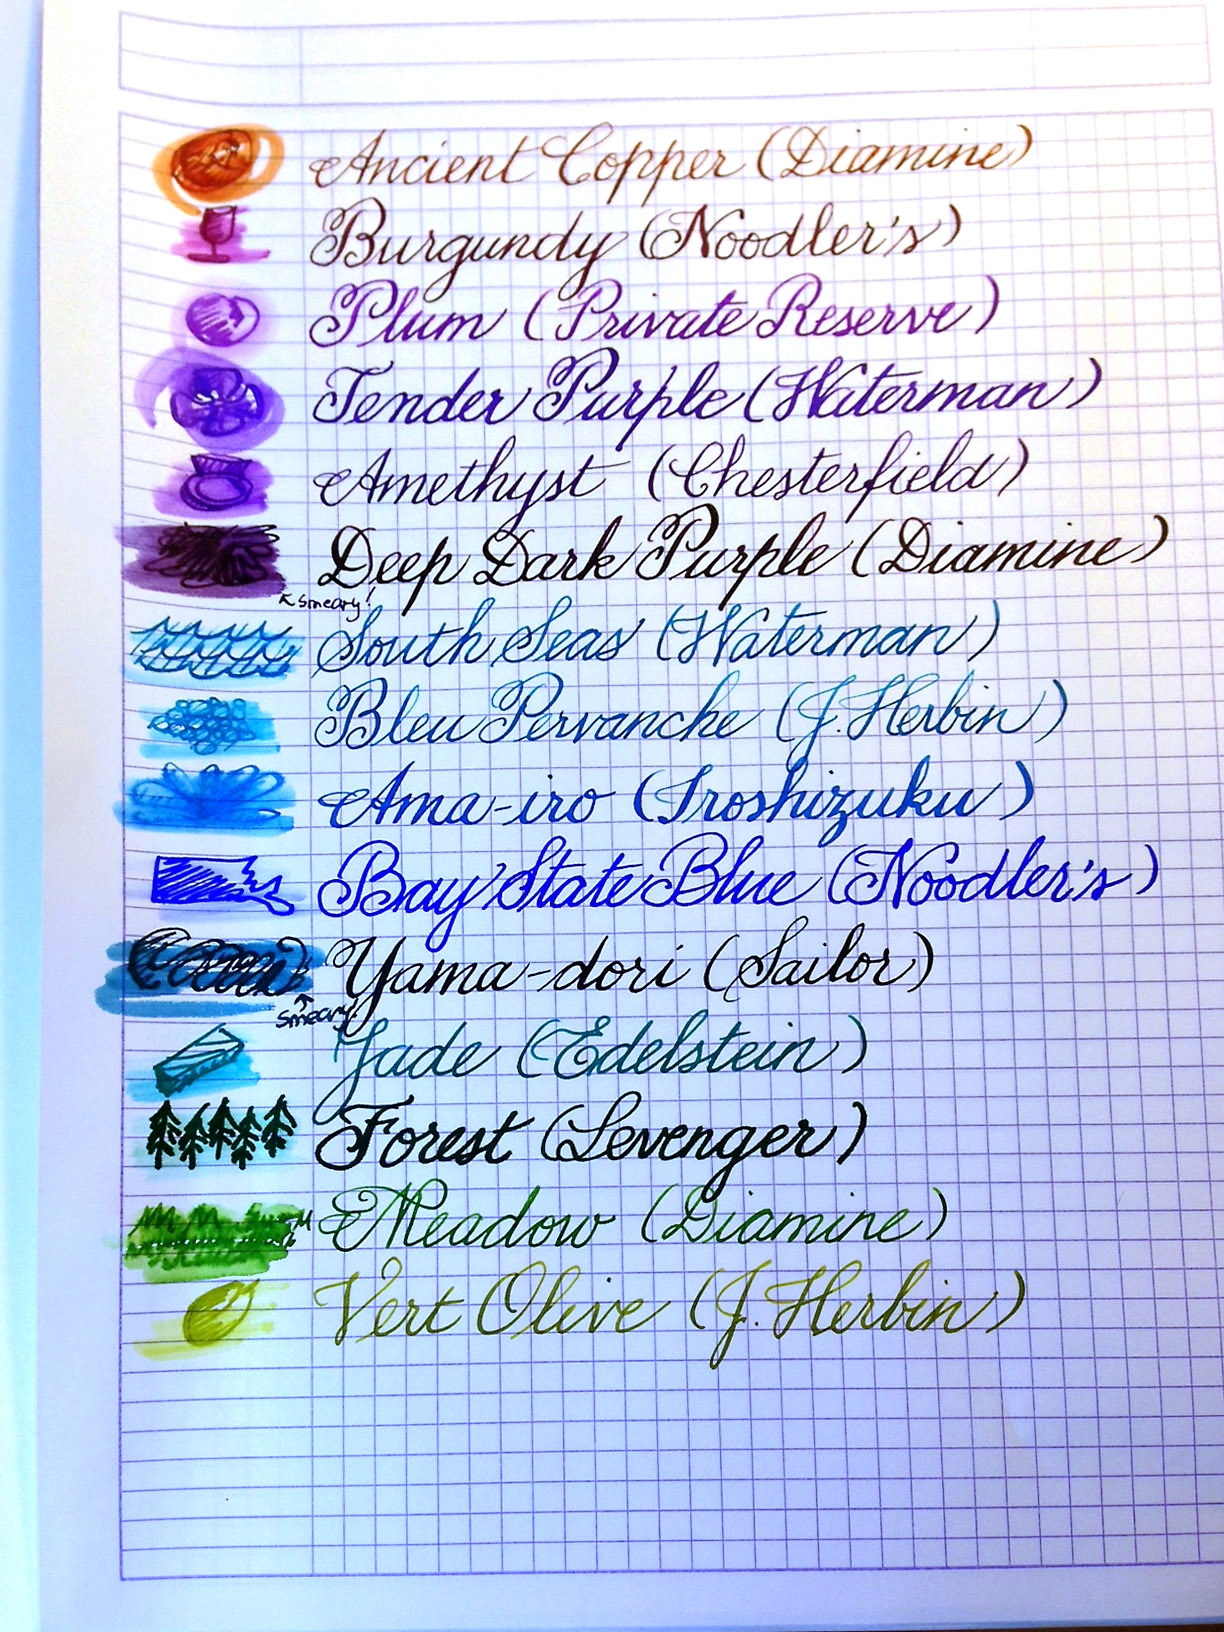 Ancient Copper (Diamine)
Burgundy (Noodler's)
Plum (Private Reserve)
Tender Purple (Waterman)
Amethyst (Chesterfield)
Deep Dark Purple (Diamine)
smeary!
South Seas (Waterman)
Bleu Pervanche (J. Herbin)
Ama-iro (Iroshizuku)
Bay State Blue (Noodler's)
Yama-dori (Sailor)
smeary
Jade (Edelstein)
Forest (Levenger)
Meadow (Diamine)
Vert Olive (J. Herbin)